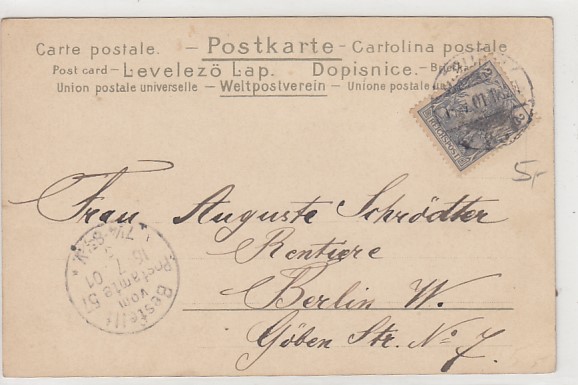 Carte postale. – Postkarte – Cartolina postale
Post card – Levelezö Lap. Dopisnice. –
Union postale universelle – Weltpostverein – Unione postale
5,-
Frau Auguste Schrödter
Rentiere
Berlin W.
Göben Str. No 7.
Bestellt
vom
Postamte 57